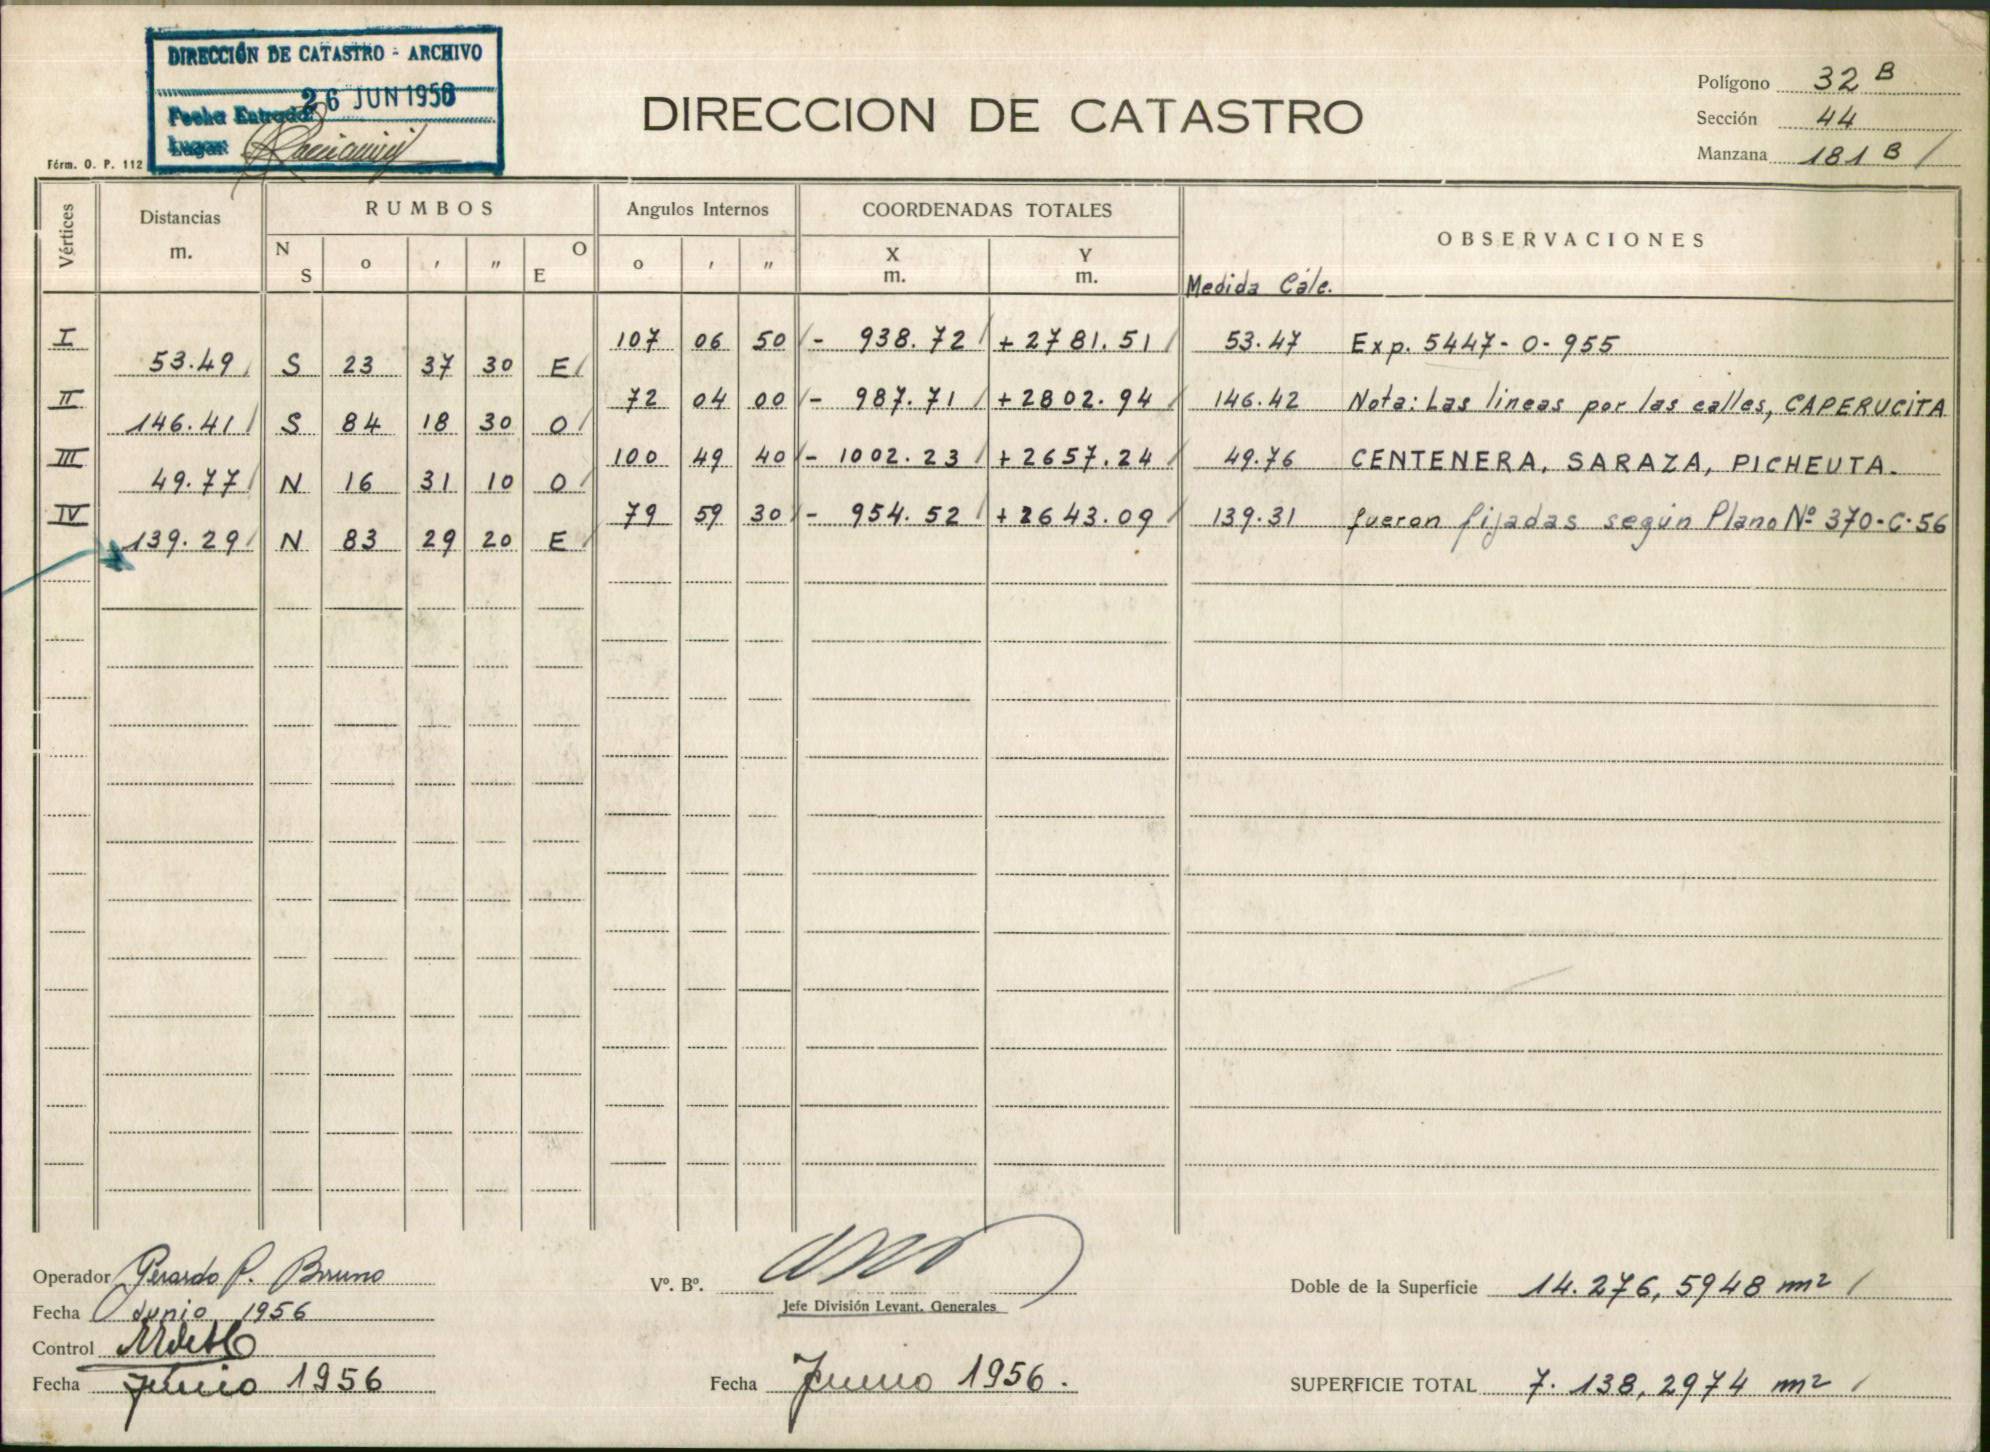 DIRECCIÓN DE CATASTRO - ARCHIVO
26 JUN 1956
Fecha Entrada:
Lugar:
Fórm. O. P. 112
DIRECCION DE CATASTRO
Polígono 32 B
Sección 44
Manzana 181 B /
Vértices Distancias m. RUMBOS Angulos Internos COORDENADAS TOTALES OBSERVACIONES
N S o ' " O E o ' " X m. Y m. Medida Cálc.
I 107 06 50 / - 938.72 / + 2781.51 / 53.47 Exp. 5447-O-955
53.49 / S 23 37 30 E /
II 72 04 00 / - 987.71 / + 2802.94 / 146.42 Nota: Las lineas por las calles, CAPERUCITA
146.41 / S 84 18 30 O /
III 100 49 40 / - 1002.23 / + 2657.24 / 49.76 CENTENERA, SARAZA, PICHEUTA.
49.77 / N 16 31 10 O /
IV 79 59 30 / - 954.52 / + 2643.09 / 139.31 fueron fijadas según Plano Nº 370-C-56
139.29 / N 83 29 20 E /
Operador Gerardo P. Bruno
Fecha Junio 1956
Control
Fecha Junio 1956
Vº. Bº.
Jefe División Levant. Generales
Fecha Junio 1956.
Doble de la Superficie 14.276,5948 m2 /
SUPERFICIE TOTAL 7.138,2974 m2 /